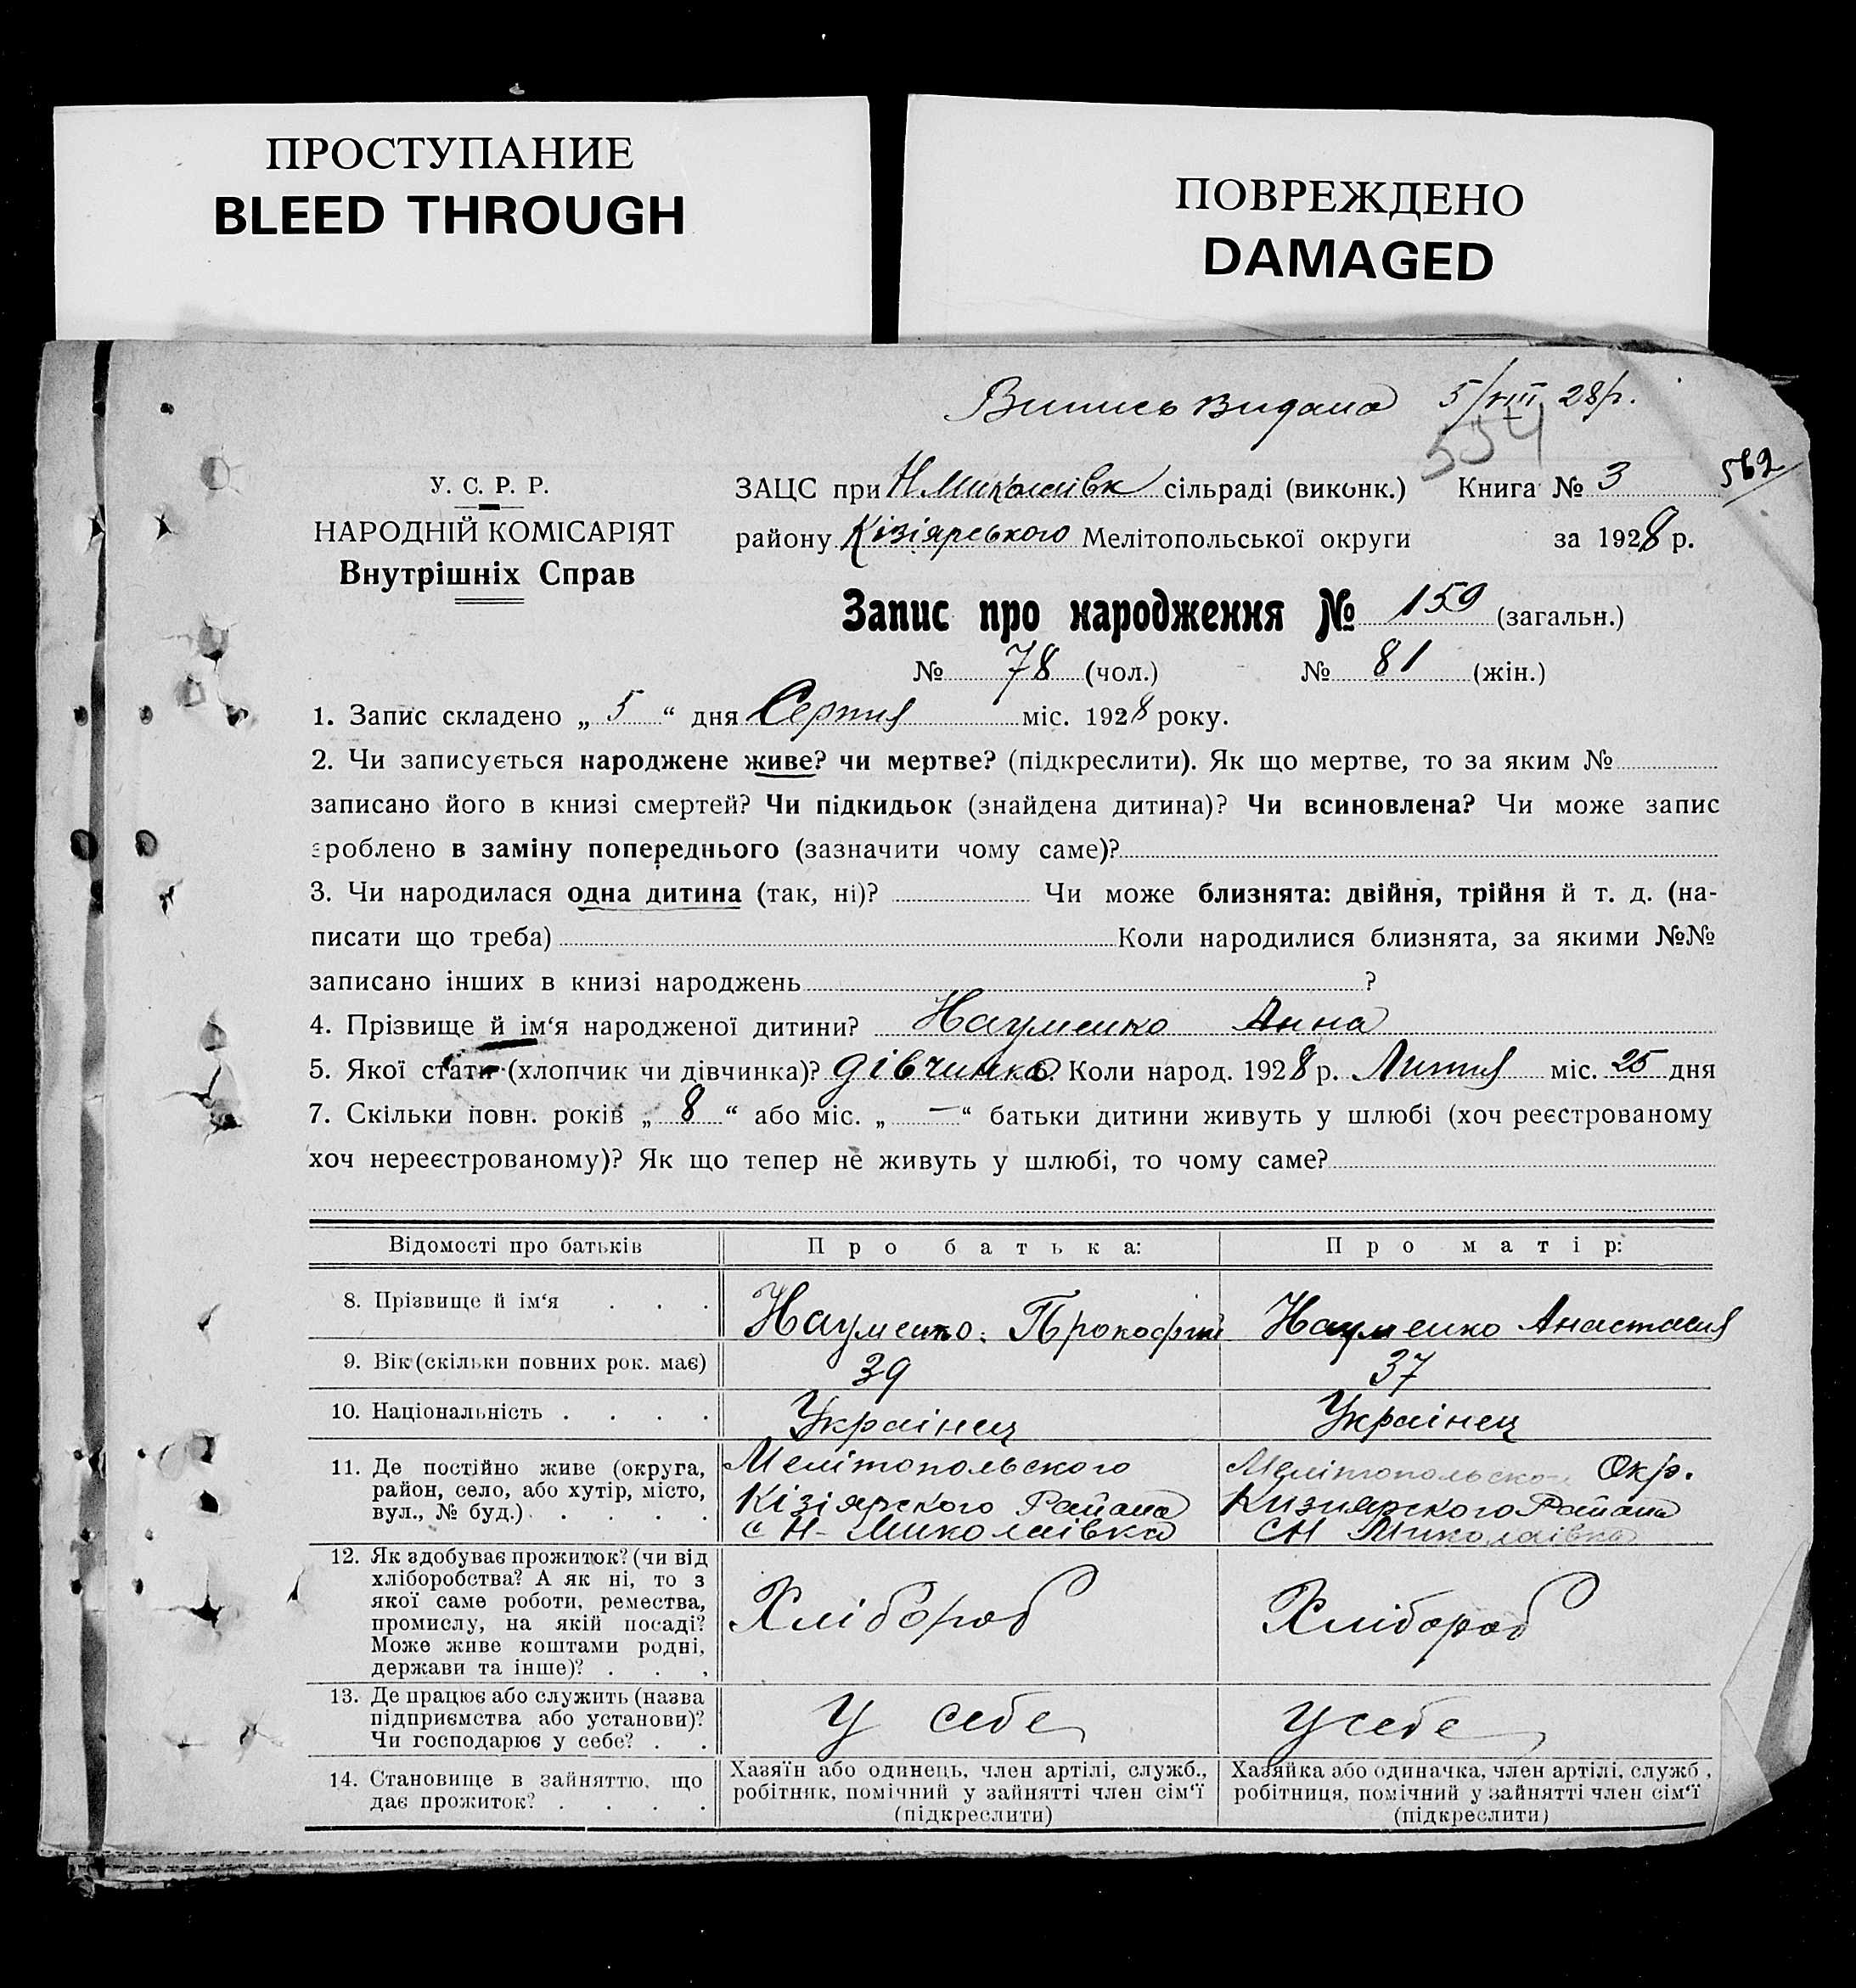 ПРОСТУПАНИЕ
BLEED THROUGH
ПОВРЕЖДЕНО
DAMAGED
Випись видана 5/VIII 28р.
554
562
У. С. Р. Р.
НАРОДНІЙ КОМІСАРІЯТ
Внутрішніх Справ
ЗАЦС при Н Миколаівк сільраді (виконк.) Книга № 3
району Кізіярського Мелітопольської округи за 1928 р.
Запис про народження № 159 (загальн.)
№ 78 (чол.) № 81 (жін.)
1. Запис складено „ 5 “ дня Серпня міс. 1928 року.
2. Чи записується народжене живе? чи мертве? (підкреслити). Як що мертве, то за яким №
записано його в книзі смертей? Чи підкидьок (знайдена дитина)? Чи всиновлена? Чи може запис
зроблено в заміну попереднього (зазначити чому саме)?
3. Чи народилася одна дитина (так, ні)? Чи може близнята: двійня, трійня й т. д. (на-
писати що треба) Коли народилися близнята, за якими №№
записано інших в книзі народжень ?
4. Прізвище й ім‘я народженої дитини? Науменко Анна
5. Якої стати (хлопчик чи дівчинка)? дівчинка 6. Коли народ. 1928 р. Липня міс. 25 дня
7. Скільки повн. років „ 8 “ або міс. „ — “ батьки дитини живуть у шлюбі (хоч реєстрованому
хоч нереєстрованому)? Як що тепер не живуть у шлюбі, то чому саме?
Відомості про батьків Про батька: Про матір:
8. Прізвище й ім‘я . . . Науменко Прокофий Науменко Анастасия
9. Вік (скільки повних рок. має) 39 37
10. Національність . . . . Украінец Украінец
11. Де постійно живе (округа, район, село, або хутір, місто, вул., № буд.) . . . . .
Мелітопольского
Кізіярского Района
с Н- Миколаівка
Мелітопольско Окр.
Кизиярского Района
с Н Миколаівка
12. Як здобуває прожиток? (чи від
хліборобства? А як ні, то з
якої саме роботи, ремества,
промислу, на якій посаді?
Може живе коштами родні,
держави та інше)? . . .
Хлібороб Хлібороб
13. Де працює або служить (назва
підприємства або установи)?
Чи господарює у себе? . .
У себе У себе
14. Становище в зайняттю, що
дає прожиток? . . . .
Хазяїн або одинець, член артілі, служб.,
робітник, помічний у зайнятті член сім‘ї
(підкреслити)
Хазяйка або одиначка, член артілі, служб.,
робітниця, помічний у зайнятті член сім‘ї
(підкреслити)